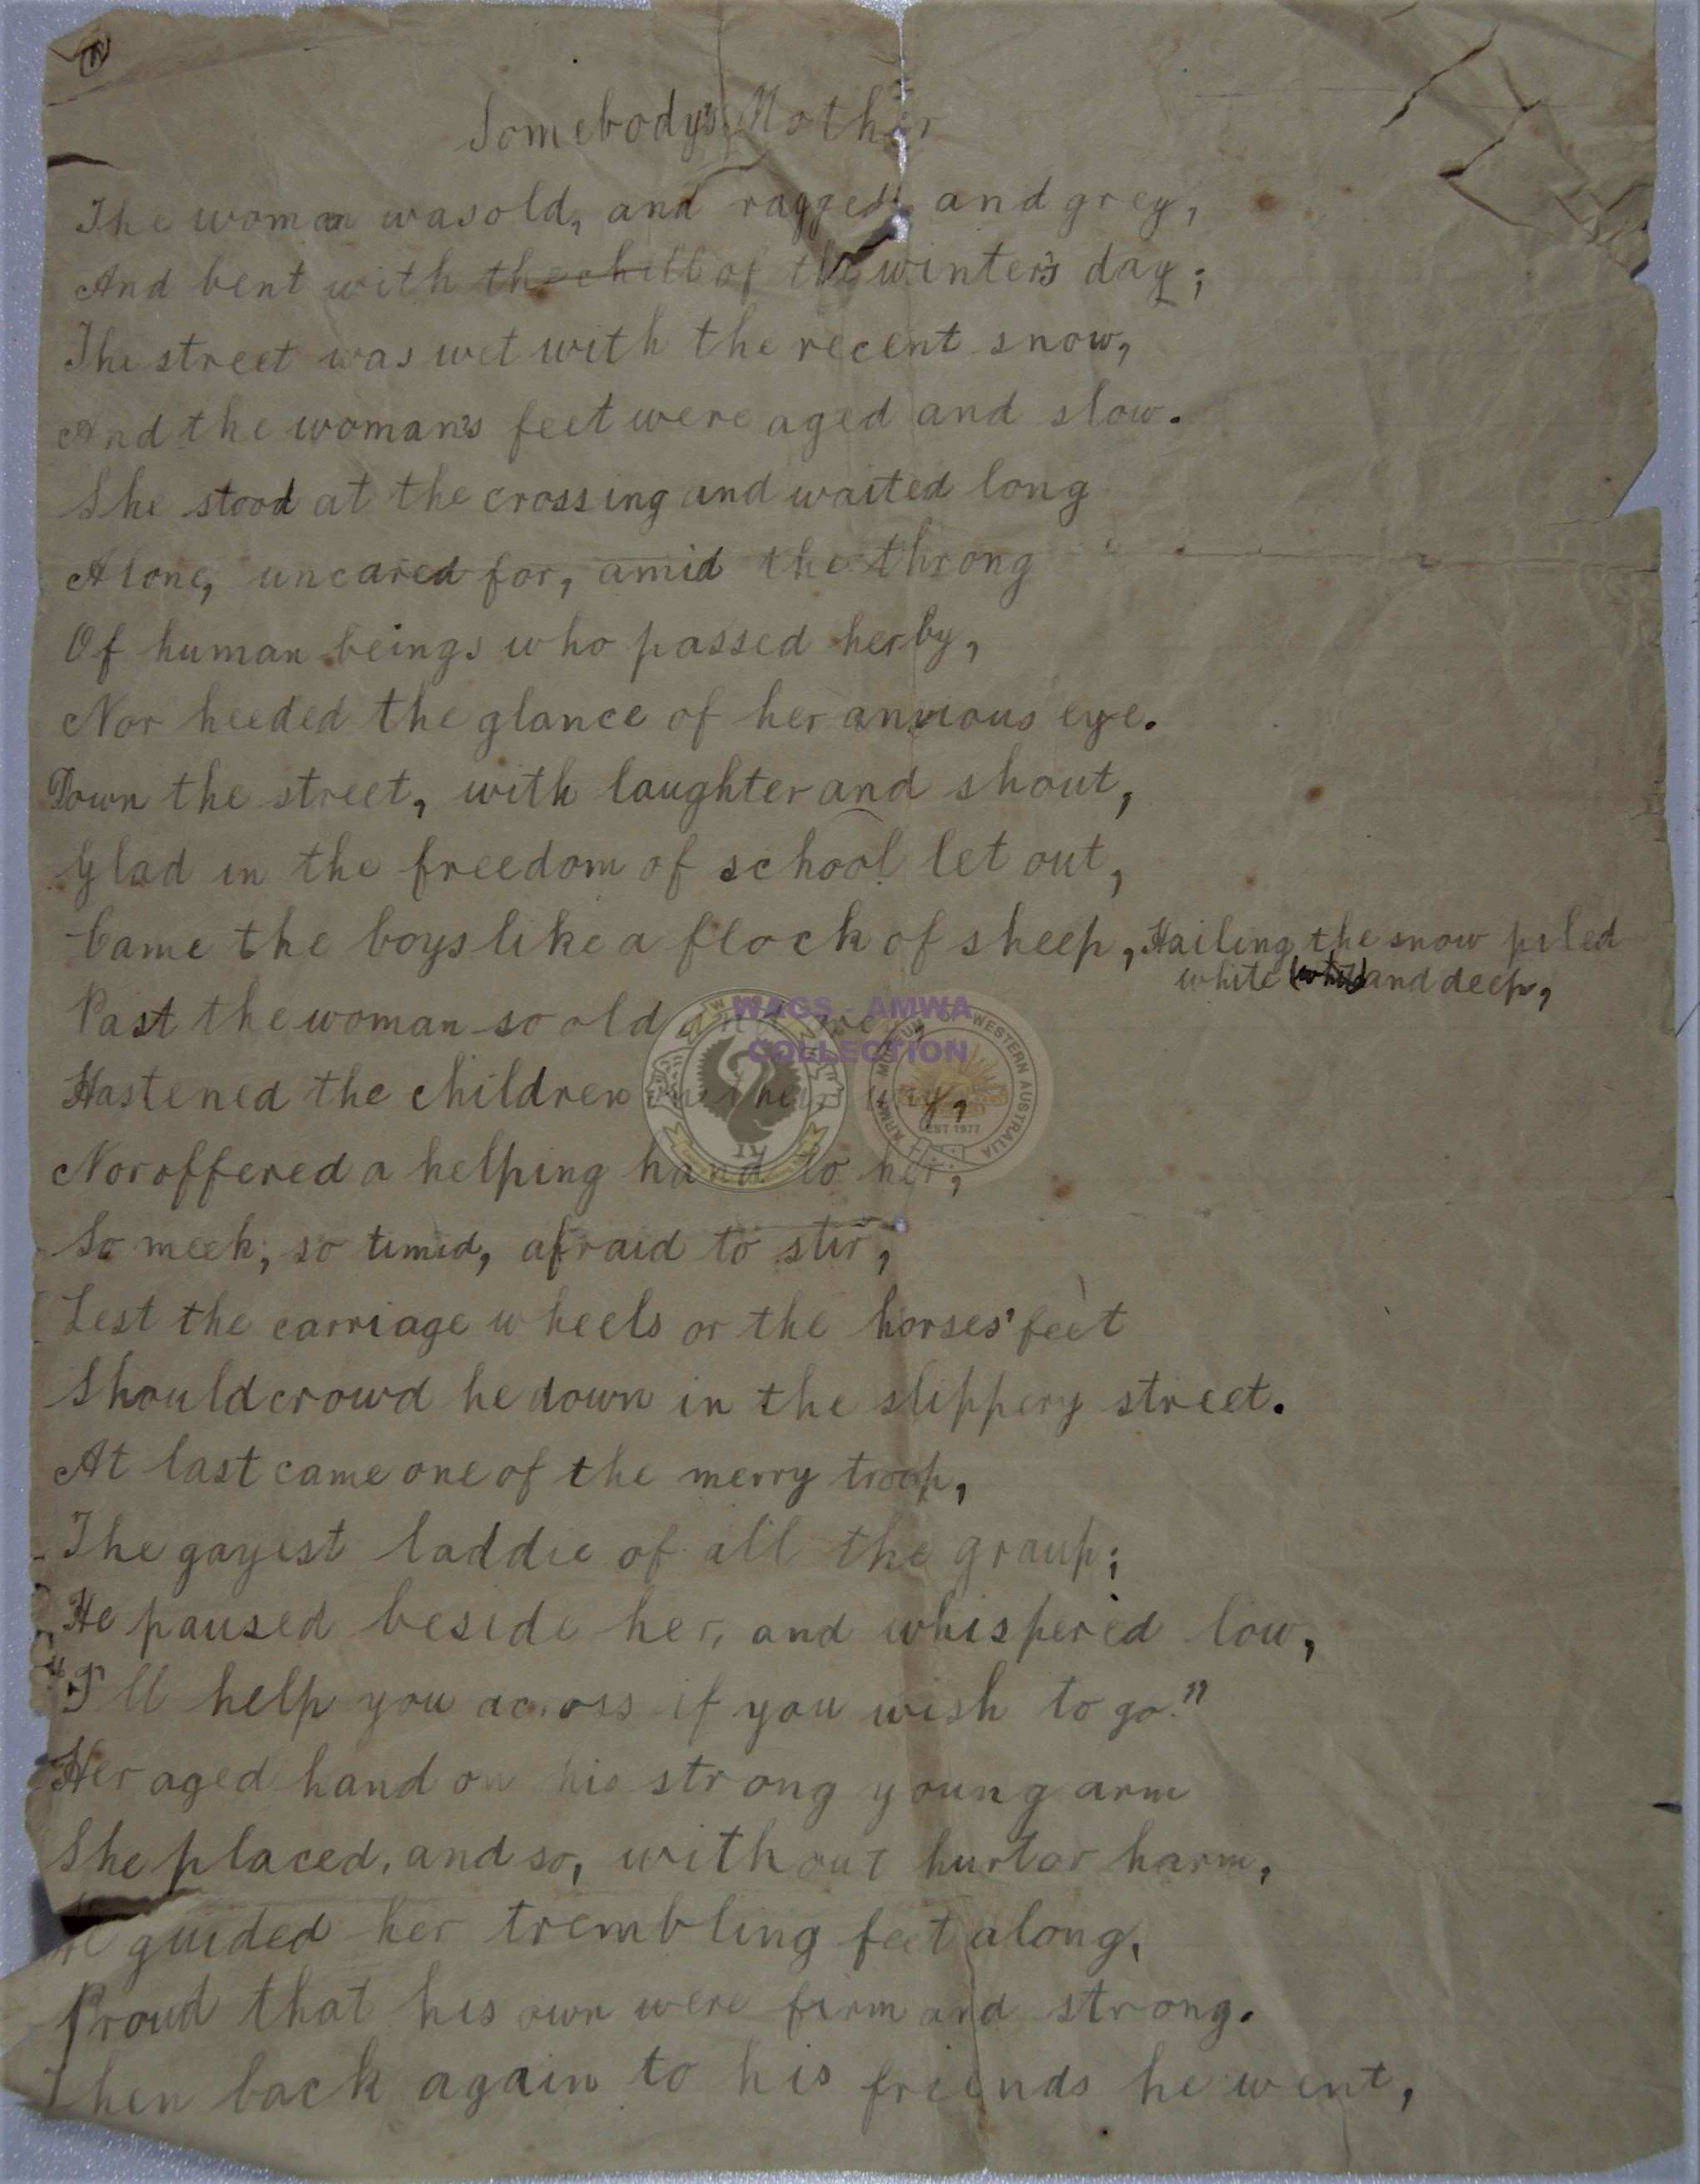 Somebody's Mother
The woman was old, and ragged and grey,
And bent with the chill of the winter's day;
The street was wet with the recent snow,
And the woman's feet were aged and slow.
She stood at the crossing and waited long
Alone, uncared for, amid the throng
Of human beings who passed her by,
Nor heeded the glance of her anxious eye.
Down the street, with laughter and shout,
Glad in the freedom of school let out,
Came the boys like a flock of sheep, Hailing the snow piled
white and deep,
Past the woman so old
WAGS - AMWA
COLLECTION
WESTERN AUSTRALIA
EST 1977
Hastened the children
Nor offered a helping hand to her,
So meek, so timid, afraid to stir,
Lest the carriage wheels or the horses' feet
Should crowd he down in the slippery street.
At last came one of the merry troop,
The gayest laddie of all the group;
He paused beside her, and whispered low,
"I'll help you across if you wish to go."
Her aged hand on his strong young arm
She placed, and so, without hurt or harm,
He guided her trembling feet along,
Proud that his own were firm and strong.
Then back again to his friends he went,